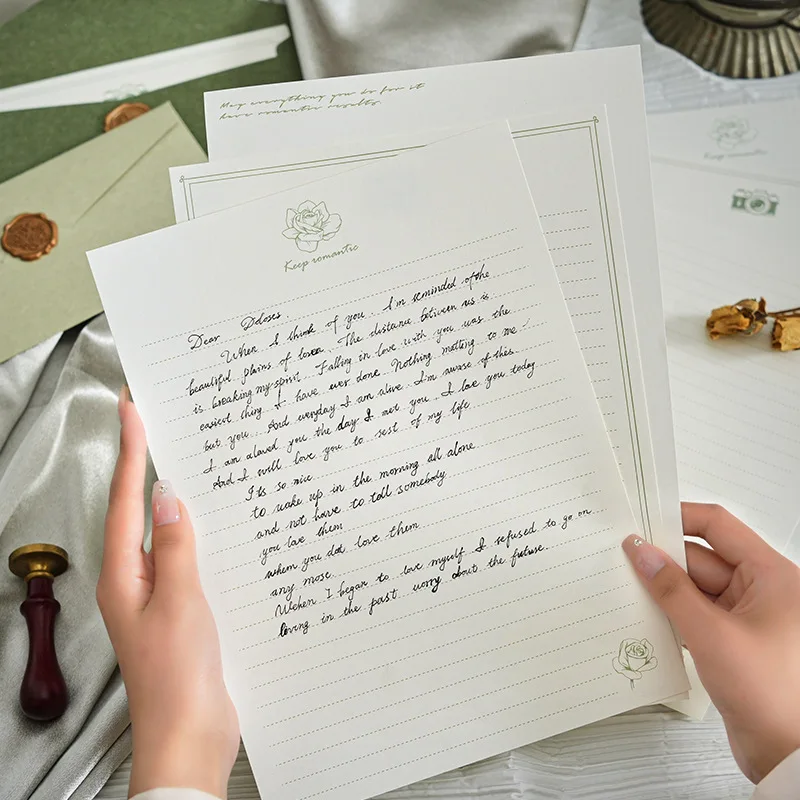 May everything you do for it
have romantic results.
Keep romantic
Dear Doloses
When I think of you I'm reminded of the
beautiful plains of loven. The distance between us is
is breaking my spirit. Falling in love with you was the
easiest thing I have ever done. Nothing matting to me
but you. And everyday I am alive. I'm aware of this.
I am aloved you the day I met you. I love you today
And I will love you to sest of my life.
Its so nice
to wake up in the morning all alone
and not have to tell somebody
you love them
when you dot love them
any more.
Wohen I began to love myself I refused to go on
loving in the past worry about the future.
Keep romantic